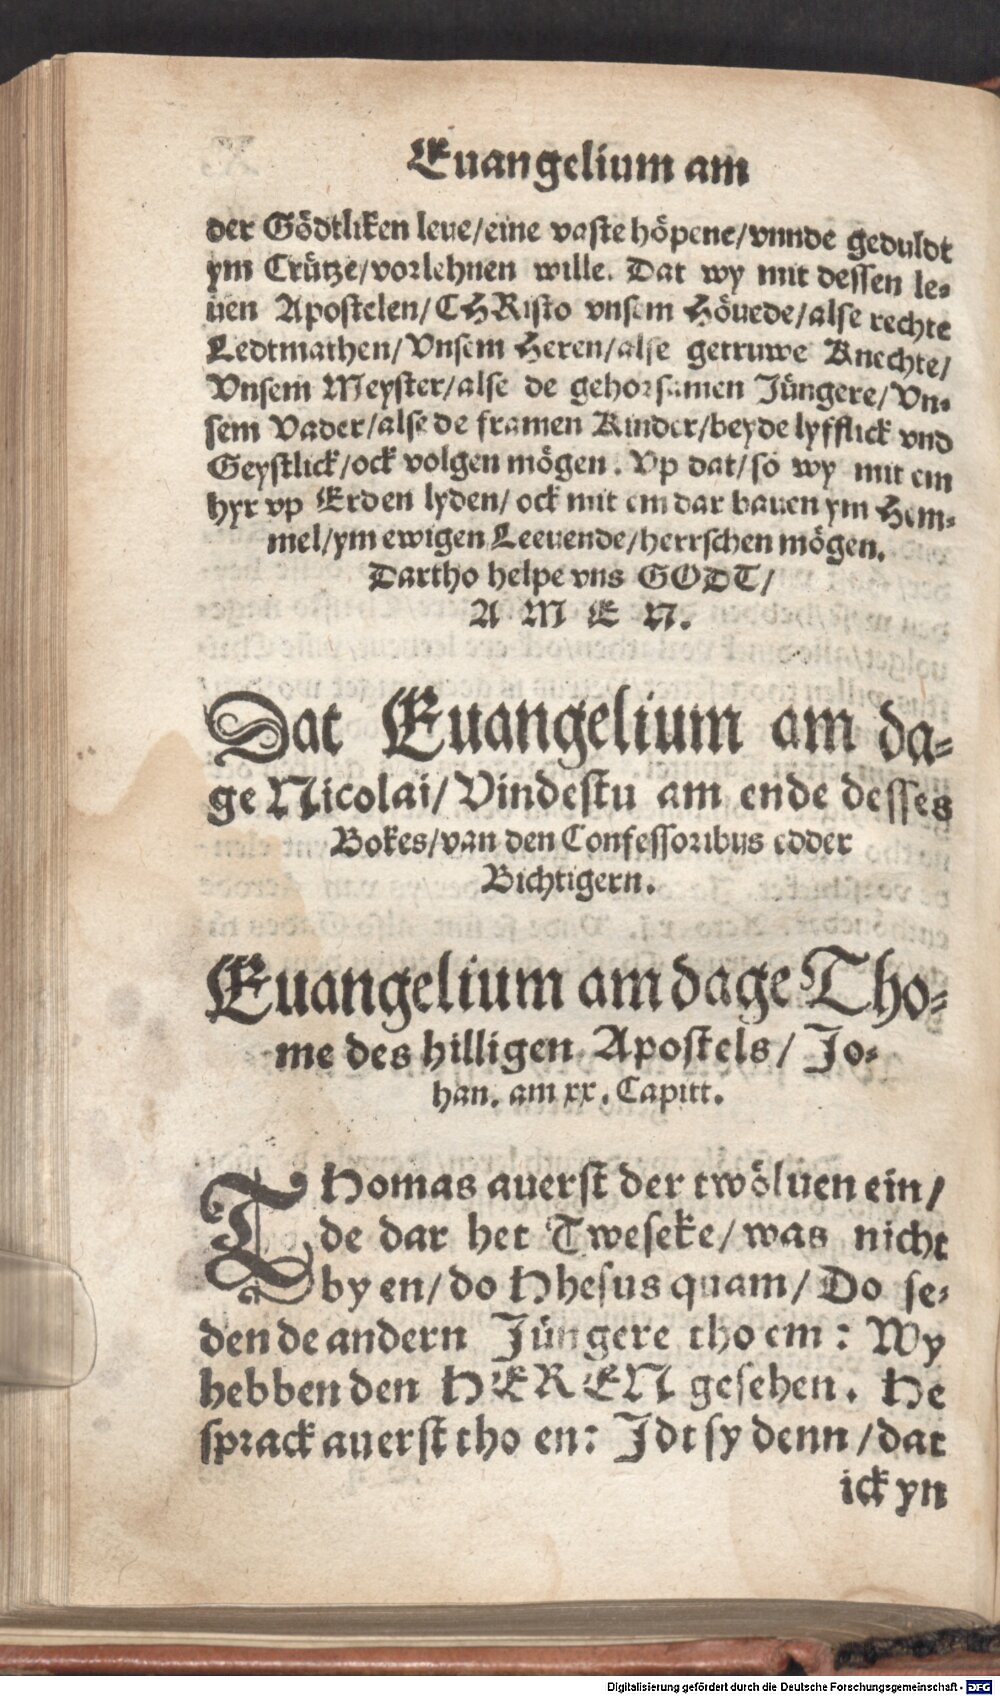 Euangelium am
der Gödtliken leue/eine vaste höpene/vnnde geduldt
ym Crütze/vorlehnen wille. Dat wy mit dessen le-
uen Apostelen/CHRisto vnsem Höuede/alse rechte
Ledtmathen/Vnsem Heren/alse getruwe Knechte/
Vnsem Meyster/alse de gehorsamen Jüngere/Vn-
sem Vader/alse de framen Kinder/beyde lyfflick vnd
Geystlick/ock volgen mögen. Vp dat/so wy mit em
hyr vp Erden lyden/ock mit em dar bauen ym Hem-
mel/ym ewigen Leeuende/herrschen mögen.
Dartho helpe vns GODT/
A M E N.
Dat Euangelium am da-
ge Nicolai/Vindestu am ende desses
Bokes/van den Confessoribus edder
Bichtigern.
Euangelium am dage Tho-
me des hilligen Apostels/Jo-
han. am xx. Capitt.
Thomas auerst der twöluen ein/
de dar het Tweseke/was nicht
by en/do Jhesus quam/Do se-
den de andern Jüngere tho em: Wy
hebben den HEREN gesehen. He
sprack auerst tho en: Jdt sy denn/dat
ick yn
Digitalisierung gefördert durch die Deutsche Forschungsgemeinschaft - DFG